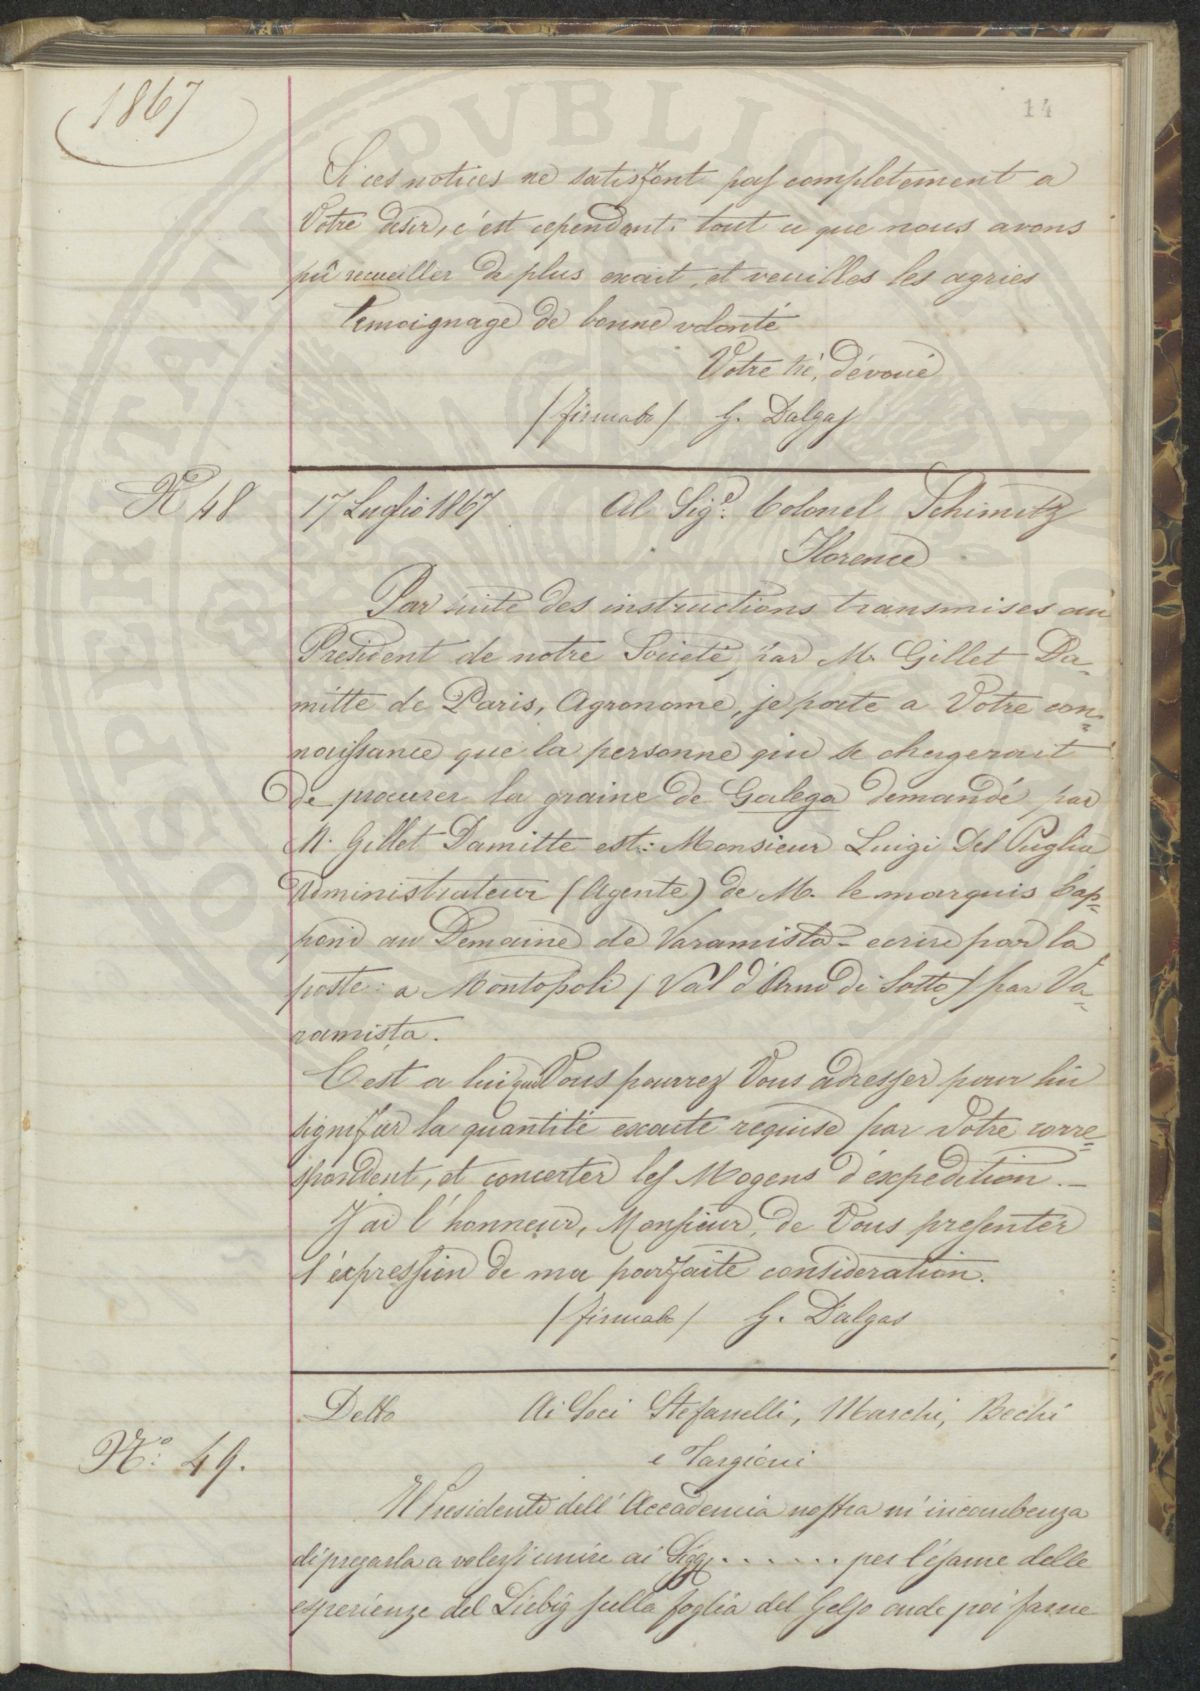 1867
14
Si ces notices ne satisfont pas completement a
Votre desir, c'est cependant tout ce que nous avons
pû recueiller de plus exact, et veuilles les agries
temoignage de bonne volonté
Votre tré. dévoué
/firmato/ G. Dalgas
N 48
17 Luglio 1867 Al Sigr. Colonel Schimitz
Florence
Par suite des instructions transmises au
President de notre Societé, par M. Gillet Da=
mitte de Paris, Agronome, je porte a Votre con=
naissance que la personne qui se chagerait
de procurer la graine de Galega demandé par
M. Gillet Damitte est: Monsieur Luigi Del Puglia
Administrateur (Agente) de M. le marquis Cap=
poni au Domaine de Varamista - ecrire par la
poste: a Montopoli / Val d'Arno di Sotto / par Va=
ramista.
C'est a lui que Vous pourrez Vous adresser pour lui
signifier la quantité exacte requise par Votre corre=
spondent, et concerter les Mogens d'expedition. -
J'ai l'honneur, Monsieur, de Vous presenter
l'expression de ma parfaite consideration.
/firmato/ G. Dalgas
Detto Ai Soci Stefanelli, Marchi, Bechi
e Targioni
No: 49.
Il Presidente dell'Accademia nostra m'incombenza
di pregarla a volersi unire ai Sigg. . . . . . . per l'esame delle
esperienze del Liebig sulla foglia del Gelso onde poi farne